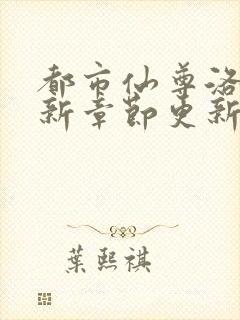 都市仙尊洛
新章節更新
葉熙祺